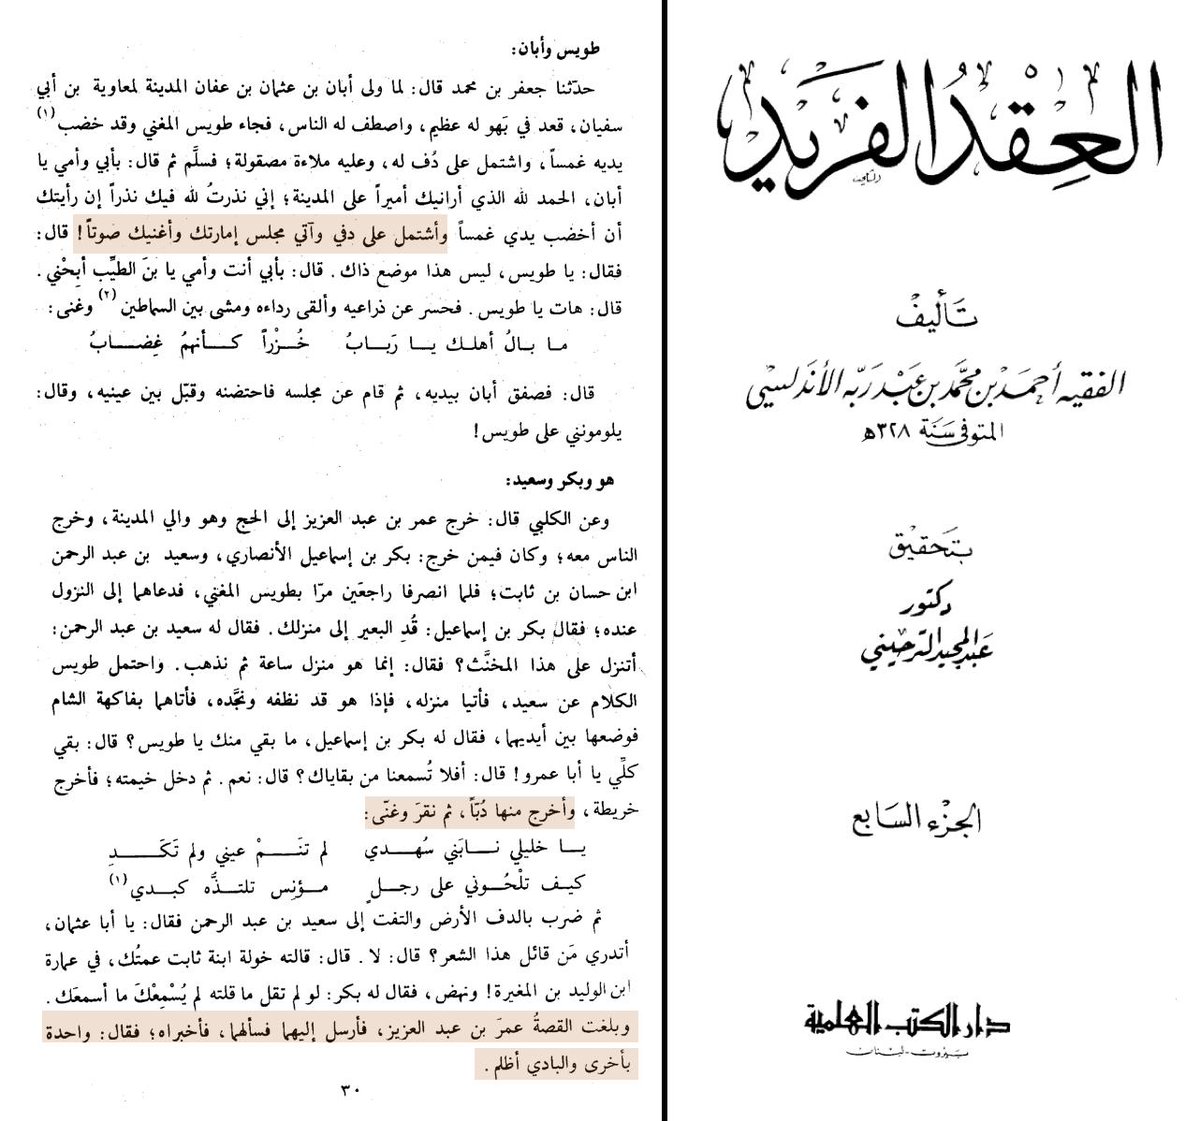 طويس وأبان:
حدّثنا جعفر بن محمد قال: لما ولى أبان بن عثمان بن عفان المدينة لمعاوية بن أبي
سفيان، قعد في بَهو له عظيم، واصطف له الناس، فجاء طويس المغني وقد خضب (١)
يديه غمساً، واشتمل على دُف له، وعليه ملاءة مصقولة؛ فسلَّم ثم قال: بأبي وأمي يا
أبان، الحمد لله الذي أرانيك أميراً على المدينة؛ إني نذرتُ لله فيك نذراً إن رأيتك
أن أخضب يدي غمساً وأشتمل على دفي وآتي مجلس إمارتك وأغنيك صوتاً! قال:
فقال: يا طويس، ليس هذا موضع ذاك. قال: بأبي أنت وأمي يا بنَ الطيِّب أبِحْني.
قال: هات يا طويس. فحسر عن ذراعيه وألقى رداءه ومشى بين السماطين (٢) وغنى:
ما بالُ أهلك يا رَبابُ خُزْراً كأنهمُ غِضابُ
قال: فصفق أبان بيديه، ثم قام عن مجلسه فاحتضنه وقبّل بين عينيه، وقال:
يلومونني على طويس!
هو وبكر وسعيد:
وعن الكلبي قال: خرج عمر بن عبد العزيز إلى الحج وهو والي المدينة، وخرج
الناس معه؛ وكان فيمن خرج: بكر بن إسماعيل الأنصاري، وسعيد بن عبد الرحمن
ابن حسان بن ثابت؛ فلما انصرفا راجعَين مرّا بطويس المغني، فدعاهما إلى النزول
عنده؛ فقال بكر بن إسماعيل: قُدِ البعير إلى منزلك. فقال له سعيد بن عبد الرحمن:
أتنزل على هذا المخنَّث؟ فقال: إنما هو منزل ساعة ثم نذهب. واحتمل طويس
الكلام عن سعيد، فأتيا منزله، فإذا هو قد نظفه ونجَّده، فأتاهما بفاكهة الشام
فوضعها بين أيديهما، فقال له بكر بن إسماعيل، ما بقي منك يا طويس؟ قال: بقي
كلِّي يا أبا عمرو! قال: أفلا تُسمعنا من بقاياك؟ قال: نعم. ثم دخل خيمته؛ فأخرج
خريطة، وأخرج منها دُبّاً، ثم نقرَ وغنّى:
يا خليلي نابَني سُهدي لم تنَمْ عيني ولم تَكَدِ
كيف تلْحُوني على رجلٍ مؤنِس تلتذَّه كبدي (١)
ثم ضرب بالدف الأرض والتفت إلى سعيد بن عبد الرحمن فقال: يا أبا عثمان،
أتدري مَن قائل هذا الشعر؟ قال: لا. قال: قالته خولة ابنة ثابت عمتُك، في عمارة
ابن الوليد بن المغيرة! ونهض، فقال له بكر: لو لم تقل ما قلته لم يُسْمِعْكَ ما أسمعَك.
وبلغت القصةُ عمرَ بن عبد العزيز، فأرسل إليهما فسألهما، فأخبراه؛ فقال: واحدة
بأخرى والبادي أظلم.
٣٠
العِقْدُ الفَرِيد
تَأليفْ
الفقيه أحمَد بن محمَّد بن عَبْد رَبّه الأندَلسِي
المتوفى سَنَة ٣٢٨ھ
بتَحقيْق
دكتور
عَبد المجيد الترحيني
الجزْء السَابع
دار الكتب العلمية
بَيْرُوت - لبْنَان